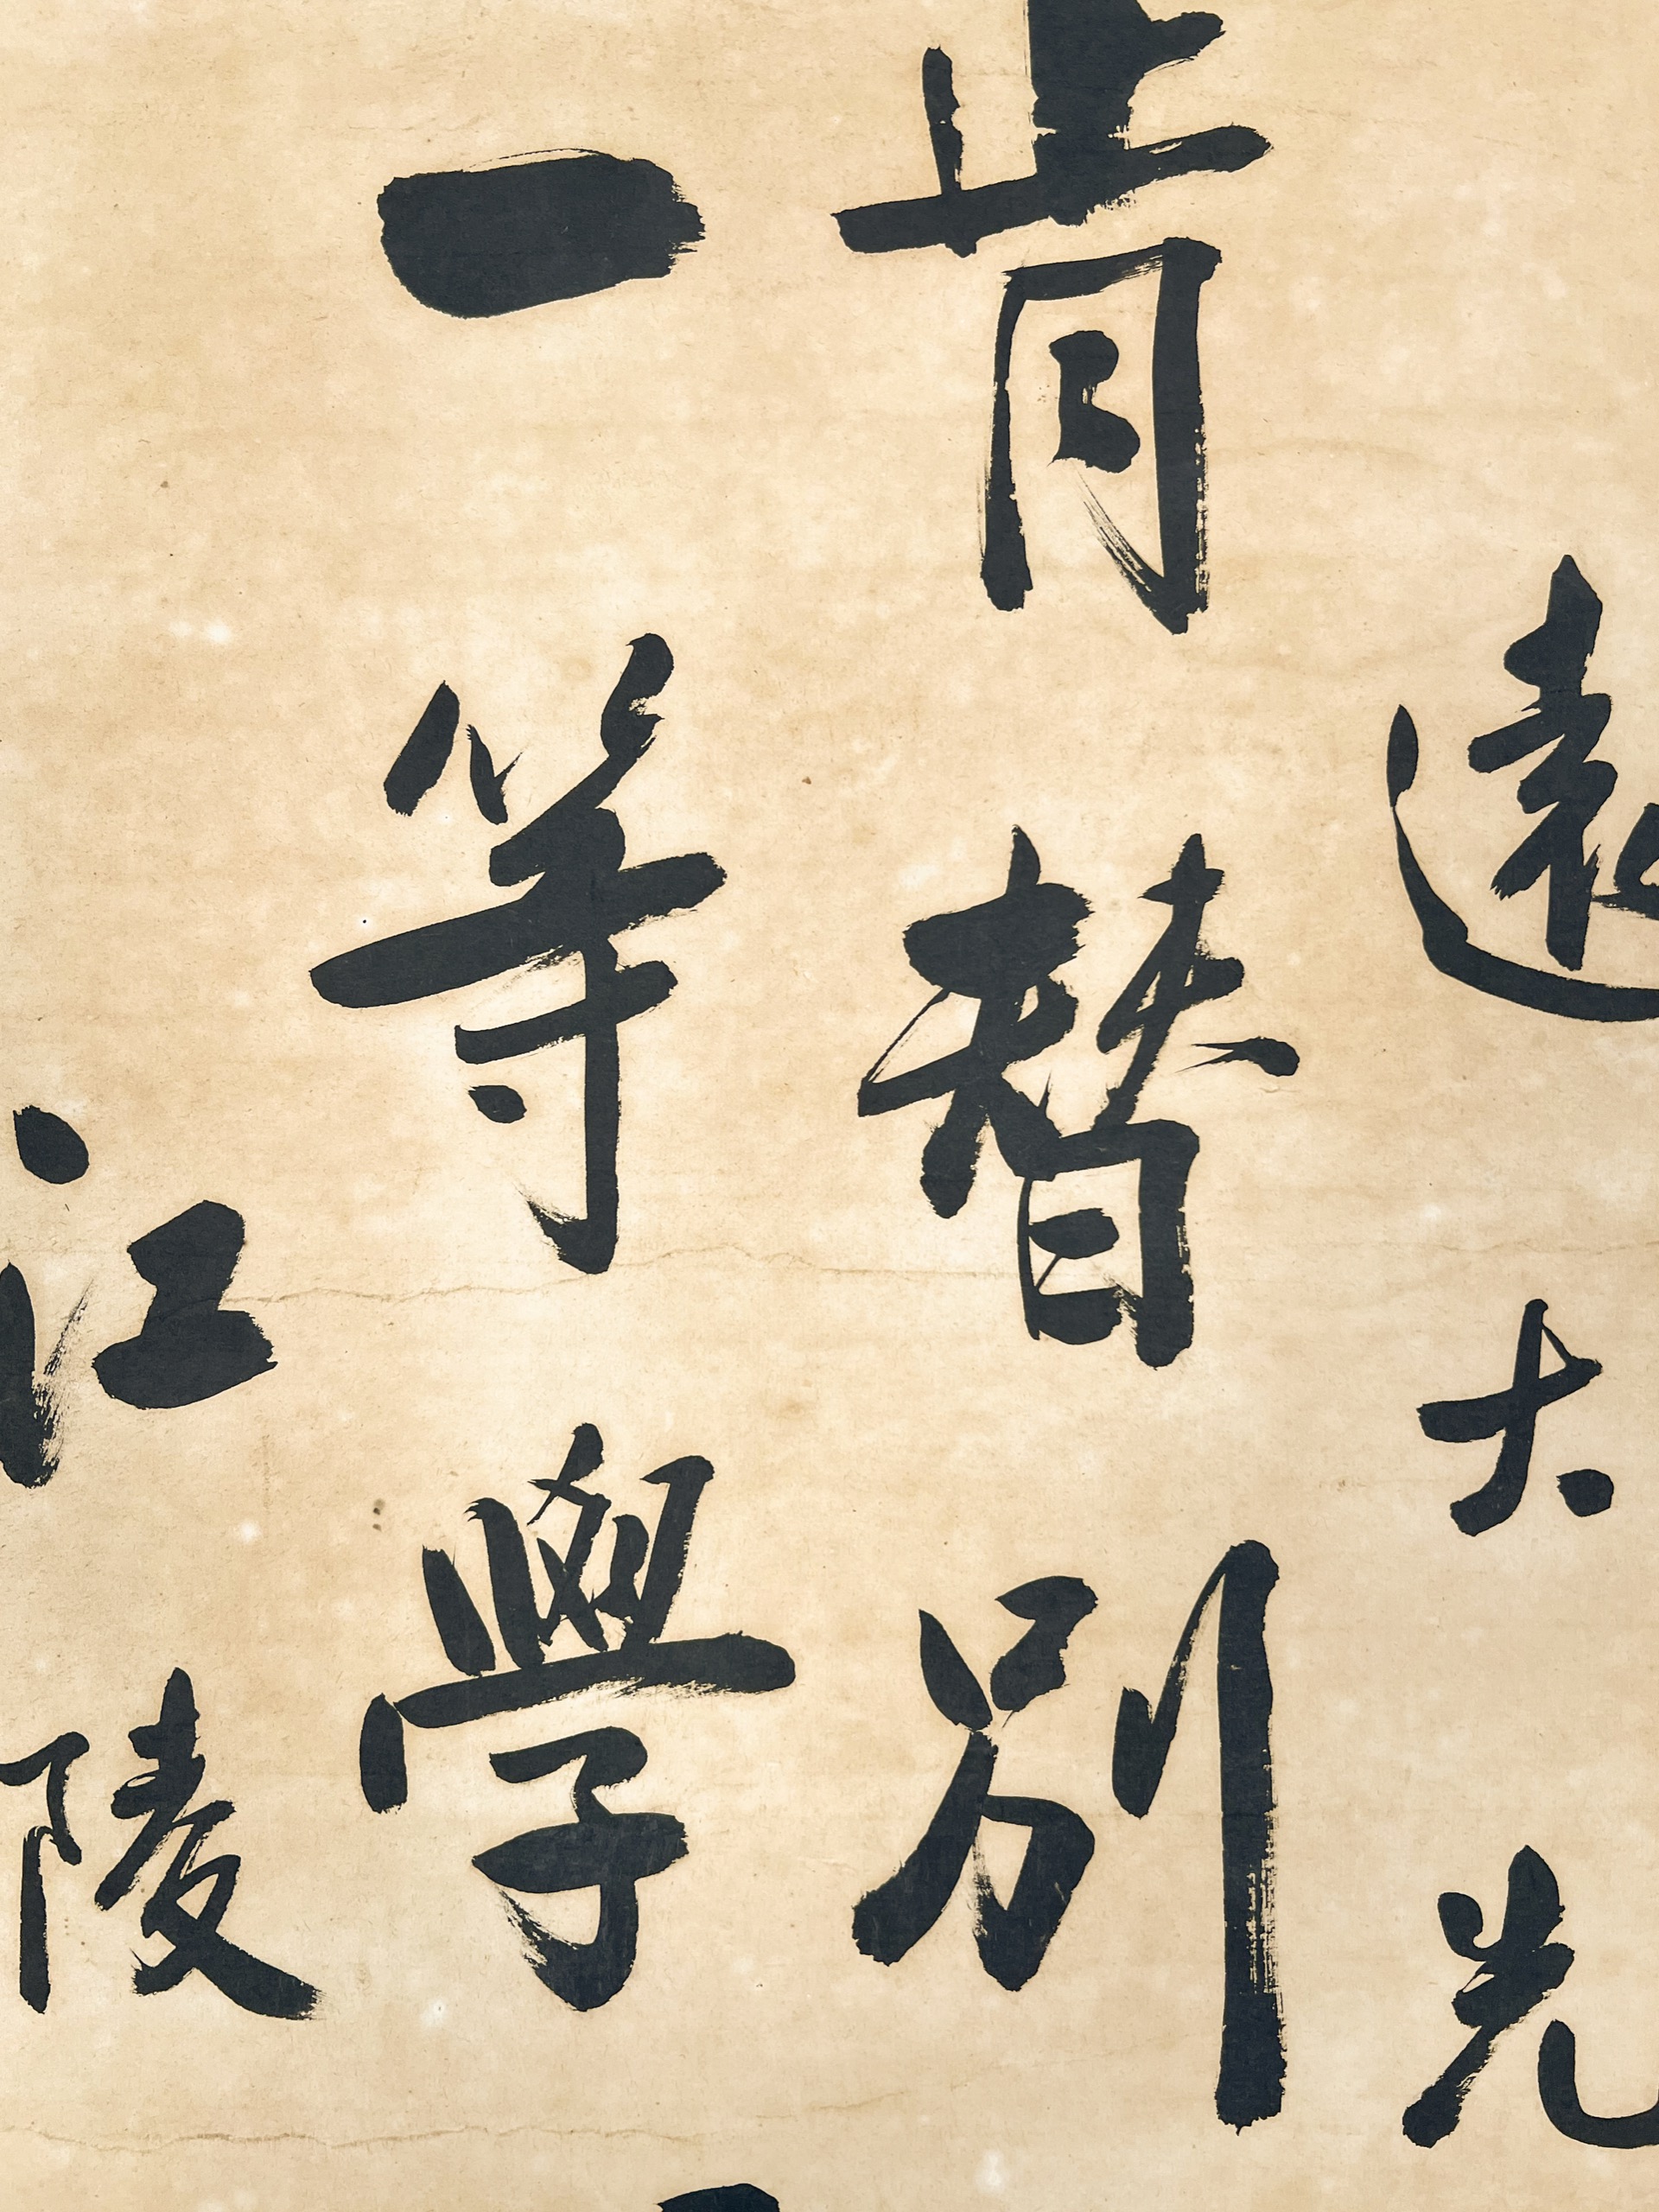 遠大先
肯替別
一等學
江陵